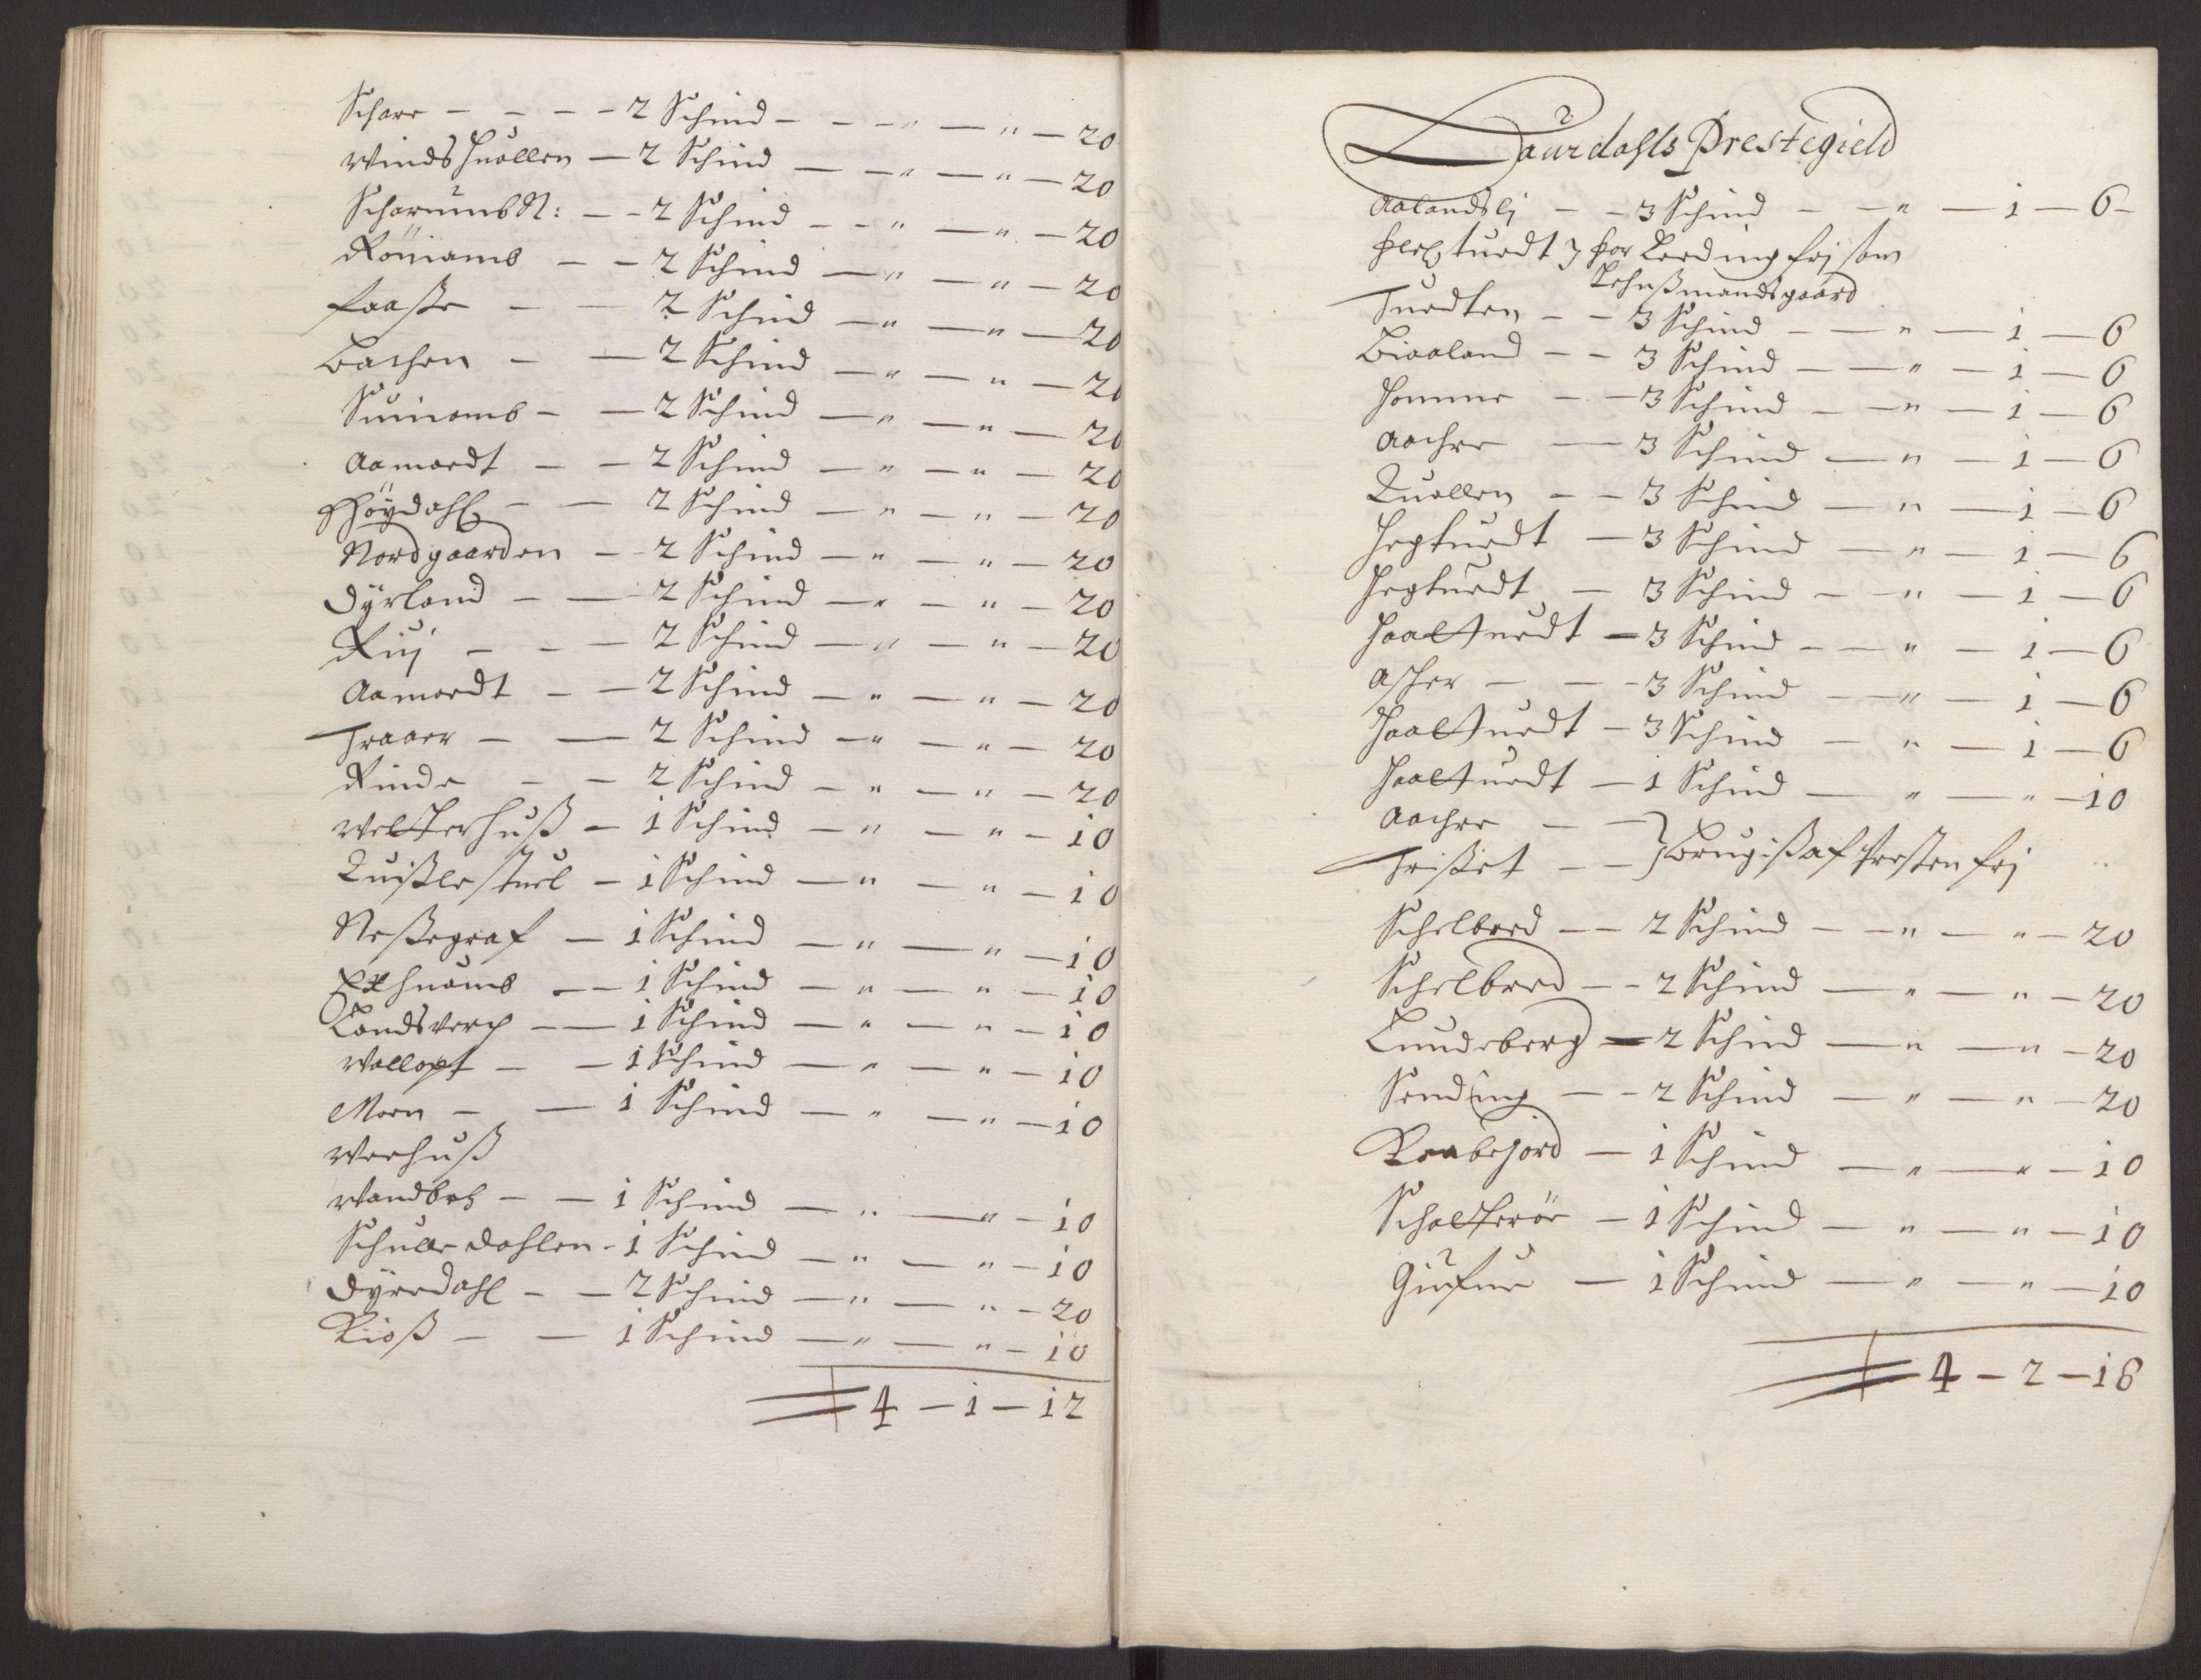 Schare - - - - 2 Schind - - - " - " - 20
Winds Huallen - 2 Schind - - " - " - 20
Scharumb N: - - 2 Schind - - " - " - 20
Röniamb - - 2 Schind - " - " - 20
Faaße - - 2 Schind - " - " - 20
Bachen - - 2 Schind - " - " - 20
Suiniomb - - 2 Schind - " - " - 20
Aamoedt - - 2 Schind - " - " - 20
Høydahl - - 2 Schind - " - " - 20
Nordgaarden - - 2 Schind - " - " - 20
Dyrland - - 2 Schind - " - " - 20
Ruj - - - 2 Schind - " - " - 20
Aamoedt - - 2 Schind - " - " - 20
Traaer - - 2 Schind - " - " - 20
Rinde - - 2 Schind - " - " - 20
Welterhuß - 1 Schind - " - " - 10
Quißlestuel - 1 Schind - " - " - 10
Neßegraf - 1 Schind - " - " - 10
Exhuamb - - 1 Schind - " - " - 10
Landsverch - - 1 Schind - " - " - 10
Wallopt - - 1 Schind - " - " - 10
Moen - - 1 Schind - " - " - 10
Werhuß
Wandbech - - 1 Schind - " - " - 10
Schulledahlen - 1 Schind - " - " - 10
Dyredahl - - 2 Schind - " - " - 20
Kioß - - 1 Schind - " - " - 10
4 - 1 - 12
Laurdahls Prestegield
Aalandslj - - 3 Schind - - " - 1 - 6 -
tuedt for Leeding frj som
Lehnßmandsgaard
Tuedten - - 3 Schind - - " - 1 - 6
Biaaland - - 3 Schind - - " - 1 - 6
Homme - - 3 Schind - - " - 1 - 6
Aachre - 3 Schind - " - 1 - 6
Quallen - - 3 Schind - " - 1 - 6
Hegtuedt - 3 Schind - " - 1 - 6
Hegtuedt - 3 Schind - - " - 1 - 6
Haaltuedt - 3 Schind - - " - 1 - 6
Asker - - - 3 Schind - - " - 1 - 6
Haaltuedt - 3 Schind - " - 1 - 6
Haaltuedt - 1 Schind - " - " - 10
Aachre - -
Trißet - - } brugiß af Presten frj
Schelbred - - 2 Schind - - " - " - 20
Schelbred - - 2 Schind - " - " - 20
Lundeberg - 2 Schind - " - " - 20
Sending - - 2 Schind - " - " - 20
Raabejord - 1 Schind - " - " - 10
Schalteröe - 1 Schind - " - " - 10
Giufue - 1 Schind - " - " - 10
4 - 2 - 18